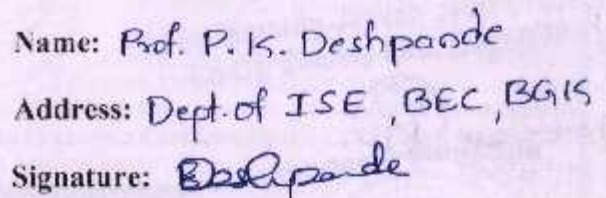 Name: Prof. P. K. Deshpande
Address: Dept. of ISE, BEC, BGK
Signature: Deshpande